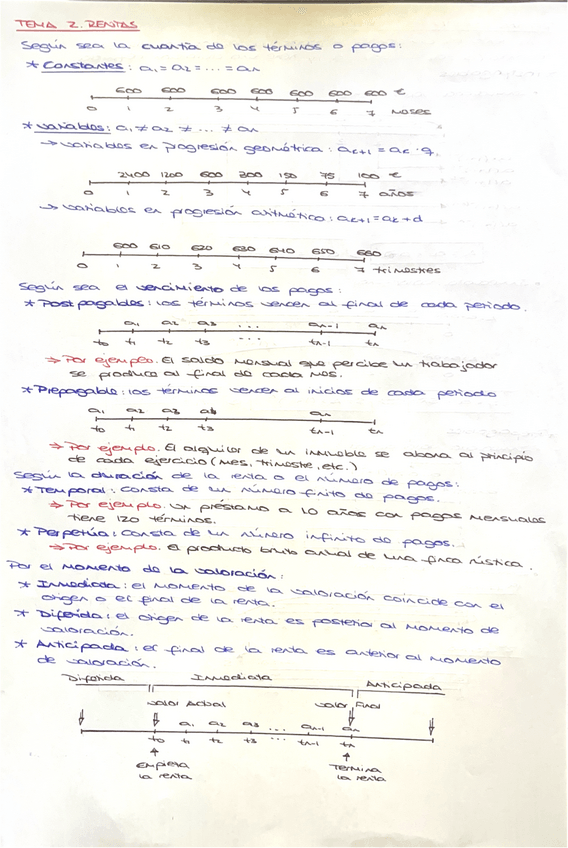 TEMA 2. RENTAS
Según sea la cuantía de los términos o pagos:
* Constantes: a₁ = a₂ = ... = aₙ
600 600 600 600 600 600 600 €
0 1 2 3 4 5 6 7 meses
* Variables: a₁ ≠ a₂ ≠ ... ≠ aₙ
→ Variables en progresión geométrica: aₖ₊₁ = aₖ · q.
2400 1200 600 300 150 75 100 €
0 1 2 3 4 5 6 7 años
→ Variables en progresión aritmética: aₖ₊₁ = aₖ + d
600 610 620 630 640 650 660
0 1 2 3 4 5 6 7 trimestres
Según sea el vencimiento de los pagos:
* Postpagables: los términos vencen al final de cada periodo.
a₁ a₂ a₃ ... aₙ₋₁ aₙ
t₀ t₁ t₂ t₃ tₙ₋₁ tₙ
⇒ Por ejemplo. El saldo mensual que percibe un trabajador
se produce al final de cada mes.
* Prepagable: los términos vencen al inicios de cada periodo
a₁ a₂ a₃ a₄ aₙ
t₀ t₁ t₂ t₃ tₙ₋₁ tₙ
⇒ Por ejemplo. El alquiler de un inmueble se abona al principio
de cada ejercicio (mes, trimeste, etc.)
Según la duración de la renta o el número de pagos:
* Temporal: consta de un número finito de pagos.
⇒ Por ejemplo. Un préstamo a 10 años con pagos mensuales
tiene 120 términos.
* Perpetúa: consta de un número infinito de pagos.
⇒ Por ejemplo. El producto bruto anual de una finca rústica.
Por el momento de la valoración:
* Inmediata: el momento de la valoración coincide con el
origen o el final de la renta.
* Diferida: el origen de la renta es posterior al momento de
valoración.
* Anticipada: el final de la renta es anterior al momento
de valoración.
Diferida Inmediata Anticipada
Valor Actual Valor Final
a₁ a₂ a₃ ... aₙ₋₁ aₙ
t₀ t₁ t₂ t₃ tₙ₋₁ tₙ
Empieza Termina
la renta la renta